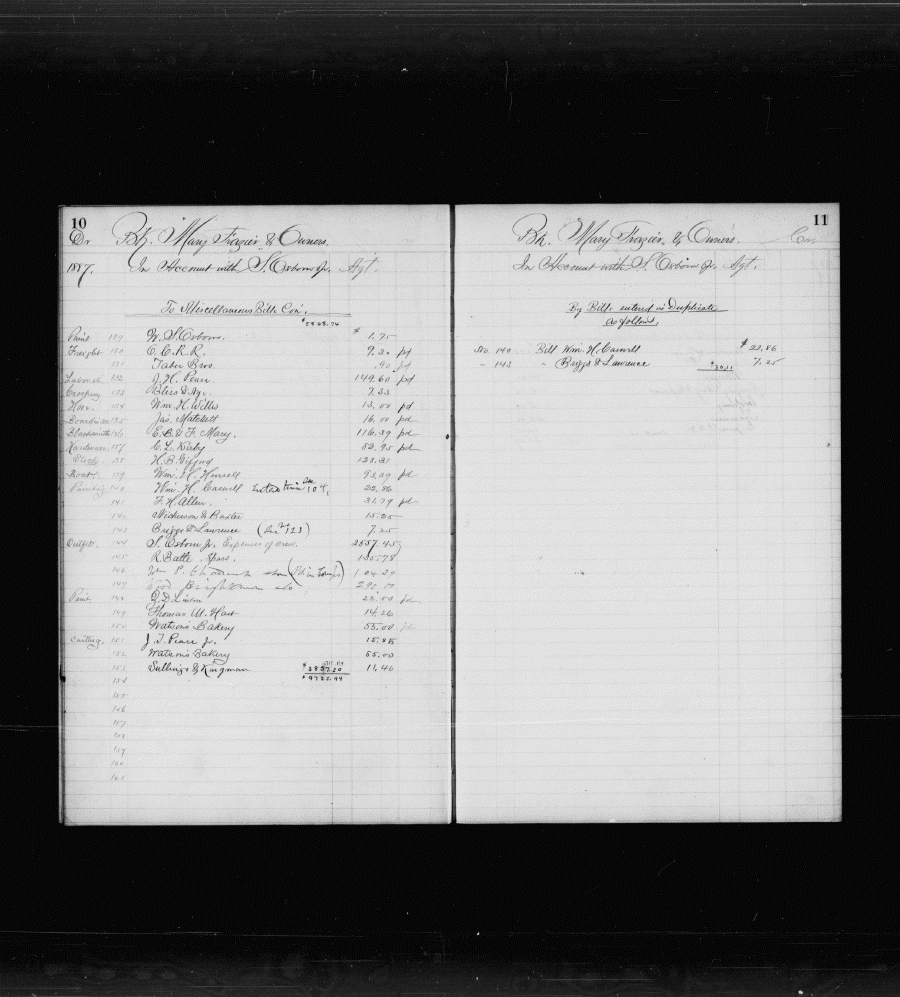 10
Dr Bk. Mary Frazier & Owners.
1887. In Account with S. Osborn Jr. Agt.
To Miscellaneous Bills Con'.
$5868.74
Paint 129 W. S. Osborn. $ 1.75
Freight 130 O. C. R. R. 9.20 pd
131 Taber Bros. .90 pd
Labor &c 132 J. H. Pease 149.60 pd
Crockery 133 Bliss & Nye. 7.33
134 Wm. H. Willis 13.00 pd
135 Jas. Matchett 16.00 pd
Blacksmith 136 E. B. & F. Macy. 116.39 pd
Hardware 137 C. L. Kirby 82.95 pd
138 H. B. Gifford 128.31
Boat. 139 Wm. H. 93.29 pd
140 Wm. H. Caswell 104, 22.86
141 F. H. Allen 31.79 pd
142 Dickerson & Baxter 15.25
143 Briggs & Lawrence (See No 123) 7.25
Outfits. 144 S. Osborn Jr. Expenses of crew. 2557.45
145 R. Battle. Spars.
146 Wm P.
147
Paint. 148 22.50 pd
149 Thomas M. Hart 14.26
150 Watson's Bakery 55.00
Casting. 151 J. T. Pease Jr. 15.85
152 Watson's Bakery 65.00
153 Sullings & Kingman $3857.20 11.40
154 $9725.94
155
156
157
158
159
160
161
11
Bk. Mary Frazier & Owners. Con
In Account with S. Osborn Jr. Agt.
By Bills entered in Duplicate
as follows,
No. 140 Bill Wm. H. Caswell $ 22.86
" 143 " Briggs & Lawrence $30.11 7.25